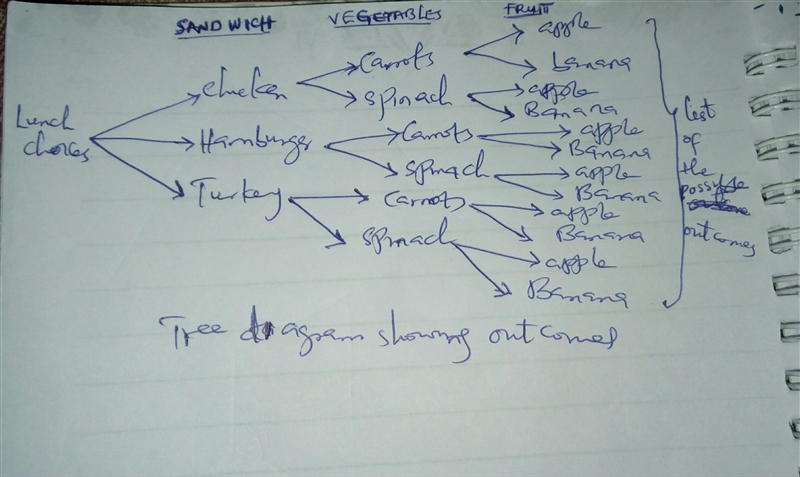 SANDWICH VEGETABLES FRUIT
apple
Carrots
banana
Chicken
apple
Spinach
Banana
Lunch choices
Carrots
apple
Hamburger
Banana
Spinach
apple
Banana
Turkey
Carrots
apple
Banana
Spinach
apple
Banana
list
of
the
possible
outcomes
Tree diagram showing outcomes